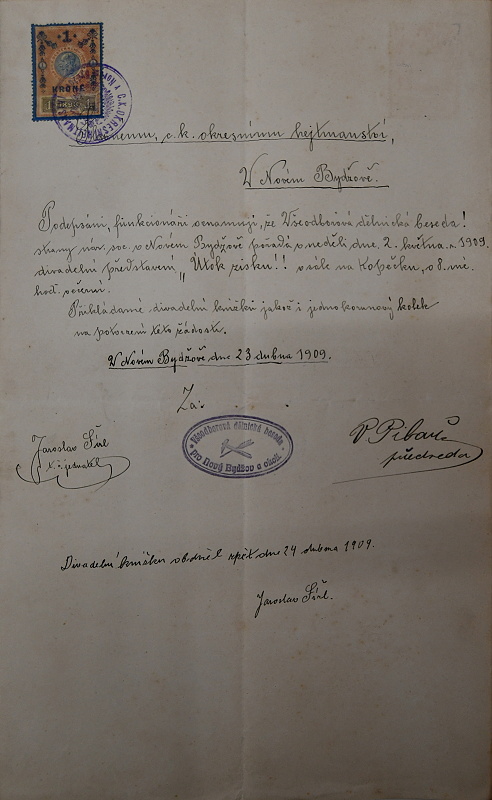 1
KRONE
C.K. OKRESNÍ
c. k. okresnímu hejtmanství,
V Novém Bydžově.
Podepsání funkcionáři oznamují, že Všeodborová dělnická beseda!
strany nár. soc. v Novém Bydžově pořádá v neděli dne, 2. května r. 1909.
divadelní představení „Útok zisku!! v sále na Kopečku, o 8. mé.
hod. večerní.
Přikládáme divadelní knížku jakož i jednokorunový kolek
na potvrzení této žádosti.
V Novém Bydžově dne 23 dubna 1909.
Za:
Všeodborová dělnická beseda
pro Nový Bydžov a okolí
Jaroslav Šírl
t. č. jednatel
V. Pibauer
předseda
Divadelní knížku obdržel zpět dne 24 dubna 1909.
Jaroslav Šírl.